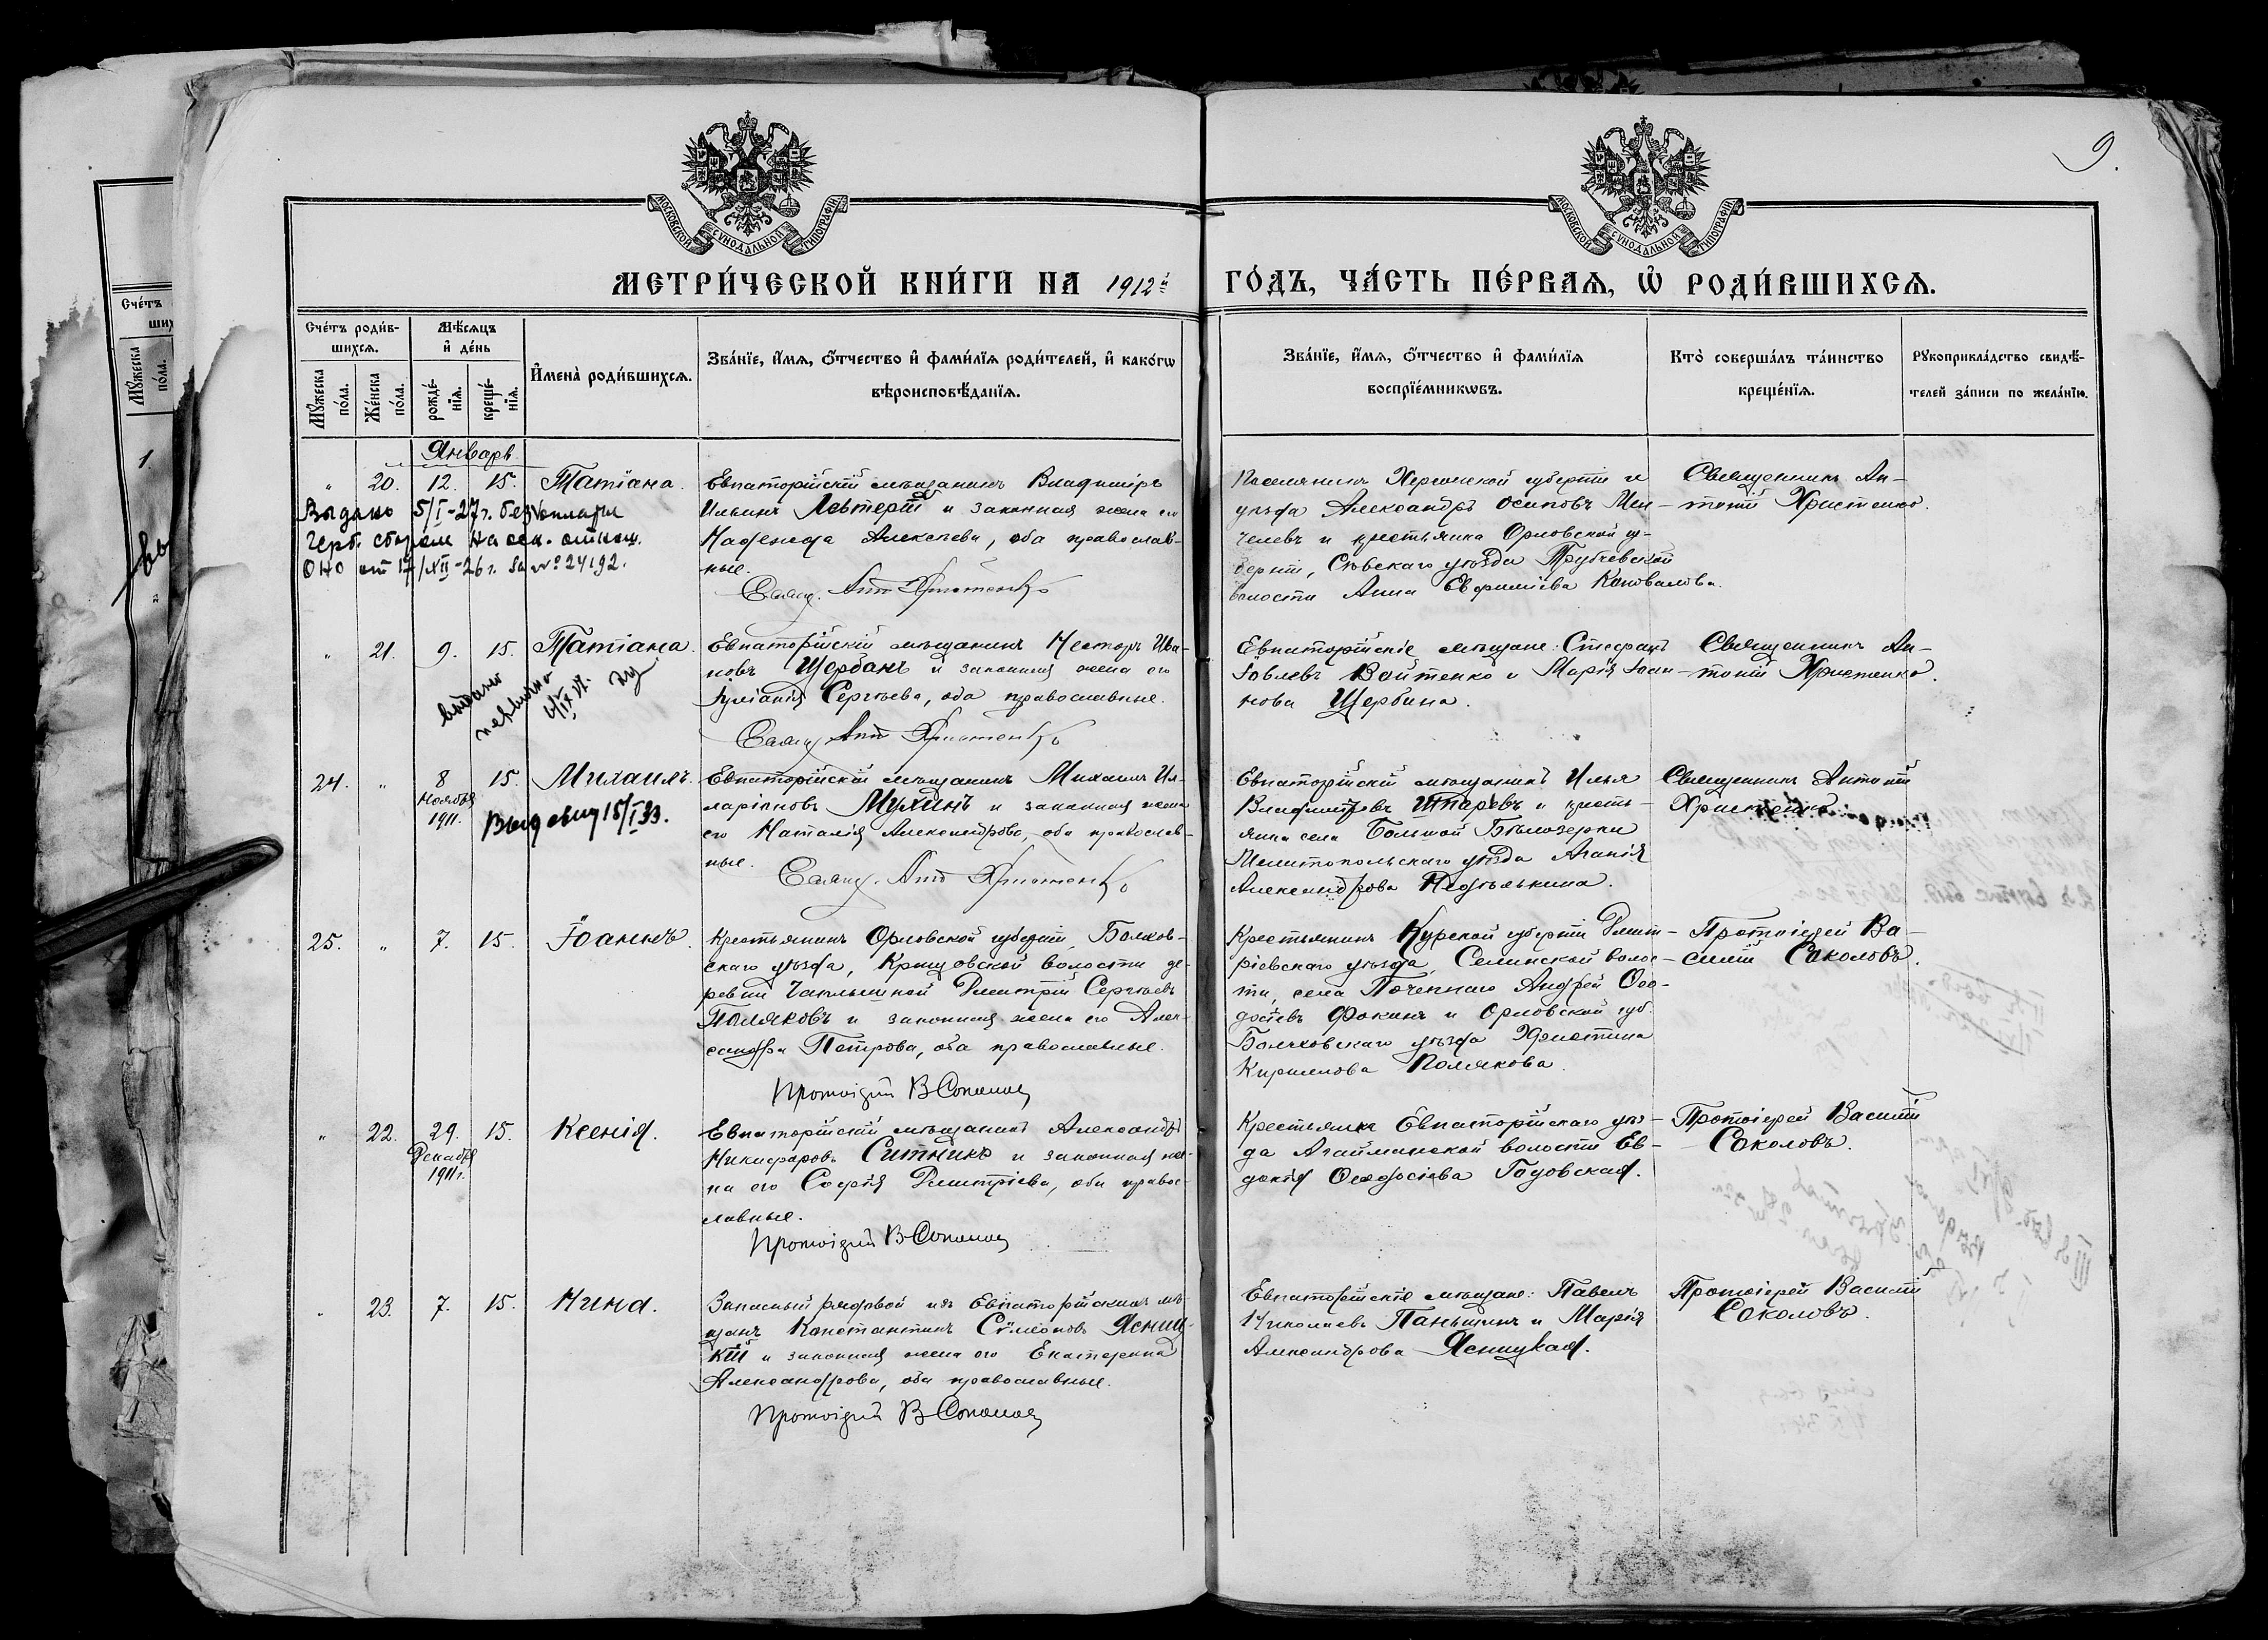 9.
МОСКОВСКОЙ СѴНОДАЛЬНОЙ ТИПОГРАФІИ
МОСКОВСКОЙ СѴНОДАЛЬНОЙ ТИПОГРАФІИ
МЕТРИ́ЧЕСКОЙ КНИ́ГИ НА 1912й ГО́ДЪ, ЧА́СТЬ ПЕ́РВАѦ, Ѡ҆ РОДИ́ВШИХСѦ.
Сче́тъ роди́в-
шихсѧ.
Мѣ́сѧцъ
и҆ де́нь
Мꙋ́жеска
по́ла.
Же́нска
по́ла.
рожде́-
нїѧ.
креще́-
нїѧ.
И҆мена̀ роди́вшихсѧ.
Зва́нїе, и҆́мѧ, ѻ҆́тчество и҆ фами́лїѧ роди́телей, и҆ како́гѡ
вѣроисповѣ́данїѧ.
Зва́нїе, и҆́мѧ, ѻ҆́тчество и҆ фами́лїѧ
воспрїе́мникѡвъ.
Кто̀ соверша́лъ та́инство
креще́нїѧ.
Рꙋкоприкла́дство свидѣ́-
телей за́писи по жела́нїю.
Январь
" 20. 12. 15. Татіана.
Евпаторійскій мѣщанинъ Владиміръ
Ильинъ Левтерій и законная жена его
Надежда Алексѣева, оба православ-
ные.
Свящ. Ант Христенко
Выдано 5/I-27г. без оплаты
Герб. сбором на осн. отнош.
ОНО от 17/XII-26г. за № 24192.
Поселянинъ Херсонской губерніи и
уѣзда Александръ Осиповъ Мен-
челевъ и крестьянка Орловской гу-
берніи, Сѣвскаго уѣзда Трубчевской
волости Анна Евфиміева Коновалова.
Священникъ Ан-
тоній Христенко.
" 21. 9. 15. Татіана.
выдано
6/IX 37.
Евпаторійскій мѣщанинъ Несторъ Ива-
новъ Щербакъ и законная жена его
Іуліанія Сергѣева, оба православные.
Свящ. Ант Христенко
Евпаторійскіе мѣщане: Стефанъ
Іовлевъ Войтенко и Марія Іоан-
нова Щербина.
Священникъ Ан-
тоній Христенко.
24. " 8 15. Михаилъ.
Ноября
1911.
18/I 33.
Евпаторійскій мѣщанинъ Михаилъ Ил-
ларіоновъ Мухинъ и законная жена
его Наталія Александрова, оба православ-
ные.
Свящ. Ант Христенко
Евпаторійскій мѣщанинъ Илья
Владиміровъ Шпаревъ и кресть-
янка села Большой Бѣлозерки
Мелитопольскаго уѣзда Агапія
Александрова
Священникъ Антоній
Христенко
25. " 7. 15. Іоаннъ.
Крестьянинъ Орловской губерніи, Болхов-
скаго уѣзда, волости де-
ревни Димитрій Сергѣевъ
Поляковъ и законная жена его Алек-
сандра Петрова, оба православные.
Протоіерей В Соколовъ
Крестьянинъ Курской губерніи Дмит-
ріевскаго уѣзда, Селинской волос-
ти, села Поченнаго Андрей Ѳео-
досіевъ Фокинъ и Орловской губ.
Болховскаго уѣзда Христина
Кириллова Полякова.
Протоіерей Ва-
силій Соколовъ.
" 22. 29. 15. Ксенія.
Декабря
1911г.
Евпаторійскій мѣщанинъ Александръ
Никифоровъ Ситникъ и законная же-
на его Софія Димитріева, оба правос-
лавные.
Протоіерей В Соколовъ
Крестьянка Евпаторійскаго уѣз-
да Агайманской волости Ев-
докія Ѳеодосіева Годовская.
Протоіерей Василій
Соколовъ.
" 23. 7. 15. Нина.
Запасный рядовой изъ Евпаторійскихъ мѣ-
щанъ Константинъ Сѵмеоновъ Ясниц-
кій и законная жена его Екатерина
Александрова, оба православные.
Протоіерей В Соколовъ
Евпаторійскіе мѣщане: Павелъ
Николаевъ Паньшинъ и Марія
Александрова Ясницкая.
Протоіерей Василій
Соколовъ.